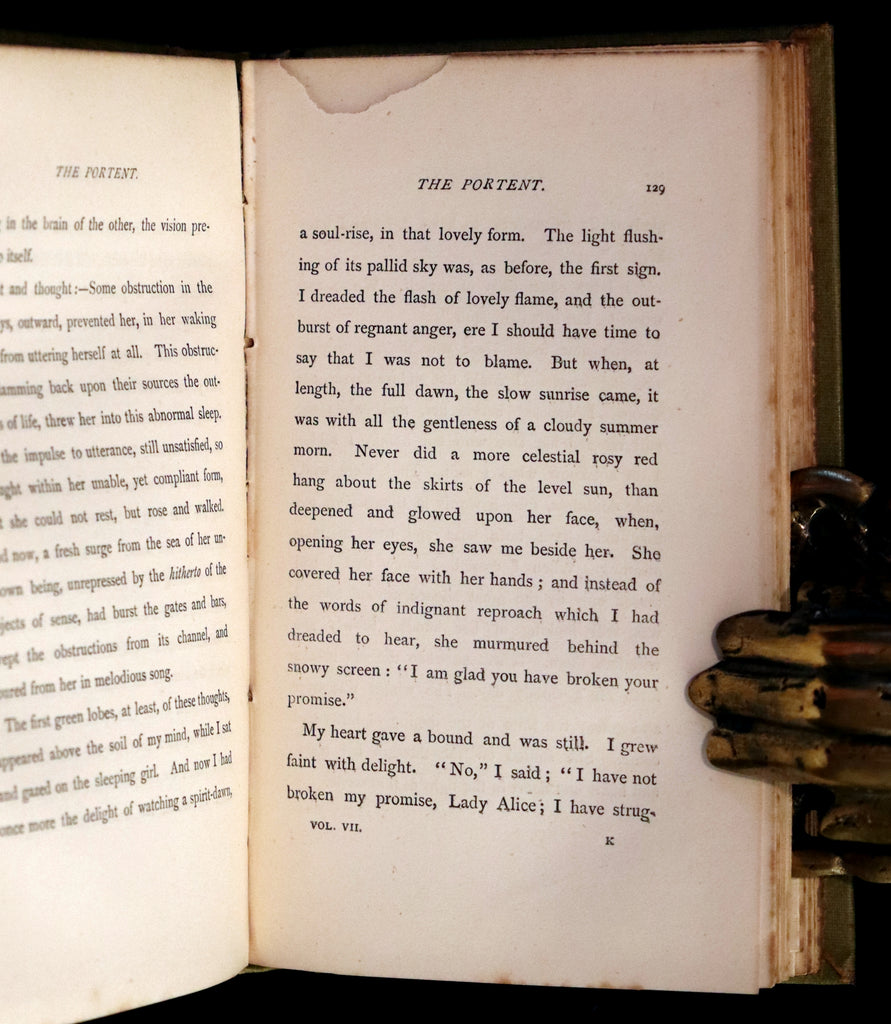 THE PORTENT.
in the brain of the other, the vision pre-
itself.
and thought:—Some obstruction in the
outward, prevented her, in her waking
from uttering herself at all. This obstruc-
back upon their sources the out-
of life, threw her into this abnormal sleep.
the impulse to utterance, still unsatisfied, so
within her unable, yet compliant form,
she could not rest, but rose and walked.
now, a fresh surge from the sea of her un-
own being, unrepressed by the hitherto of the
of sense, had burst the gates and bars,
the obstructions from its channel, and
from her in melodious song.
The first green lobes, at least, of these thoughts,
appeared above the soil of my mind, while I sat
and gazed on the sleeping girl. And now I had
once more the delight of watching a spirit-dawn,
THE PORTENT. 129
a soul-rise, in that lovely form. The light flush-
ing of its pallid sky was, as before, the first sign.
I dreaded the flash of lovely flame, and the out-
burst of regnant anger, ere I should have time to
say that I was not to blame. But when, at
length, the full dawn, the slow sunrise came, it
was with all the gentleness of a cloudy summer
morn. Never did a more celestial rosy red
hang about the skirts of the level sun, than
deepened and glowed upon her face, when,
opening her eyes, she saw me beside her. She
covered her face with her hands; and instead of
the words of indignant reproach which I had
dreaded to hear, she murmured behind the
snowy screen: "I am glad you have broken your
promise."
My heart gave a bound and was still. I grew
faint with delight. "No," I said; "I have not
broken my promise, Lady Alice; I have strug-
VOL. VII. K